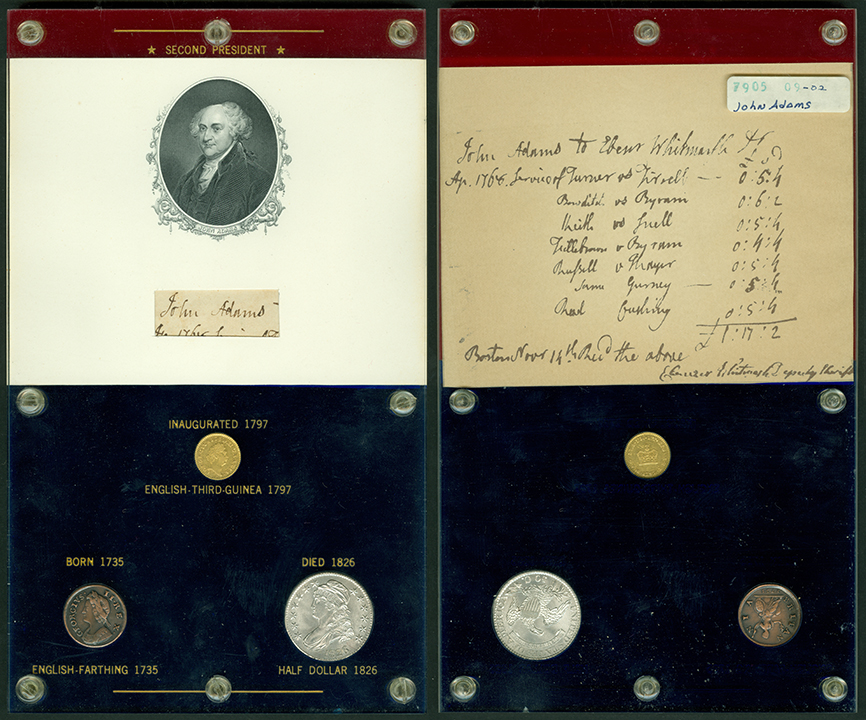 ★ SECOND PRESIDENT ★
JOHN ADAMS
John Adams
INAUGURATED 1797
ENGLISH-THIRD-GUINEA 1797
BORN 1735
DIED 1826
ENGLISH-FARTHING 1735
HALF DOLLAR 1826
7905 09-02
John Adams
John Adams to Ebenr Whitmarsh
Ap. 1768. Service of Turner vs Tirrell — 0:5:4
Bowditch vs Byram 0:6:2
Keith vs Snell 0:5:4
v Byram 0:4:4
Russell v Thayer 0:5:4
Same Gurney — 0:5:4
Read Cushing 0:5:4
£1:17:2
Boston Novr 14th Recd the above
Ebenezer Whitmarsh Deputy Sheriff